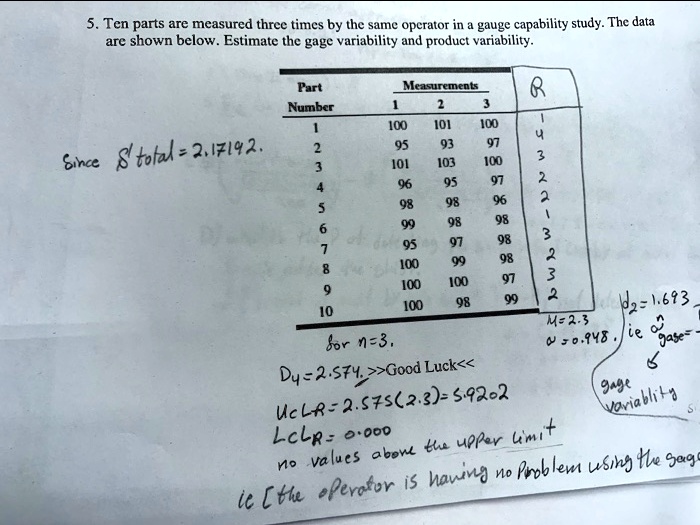 5. Ten parts are measured three times by the same operator in a gauge capability study. The data
are shown below. Estimate the gage variability and product variability.
Part Measurements R
Number 1 2 3
1 100 101 100 1
2 95 93 97 4
3 101 103 100 3
4 96 95 97 2
5 98 98 96 2
6 99 98 98 1
7 95 97 98 3
8 100 99 98 2
9 100 100 97 3
10 100 98 99 2
Since S total = 2.17192.
M = 2.3
= 0.948.
d2 = 1.693
ie gage =
gage
variablity
for n=3,
D4 = 2.574. >>Good Luck<<
UCLR = 2.575(2.3) = 5.9202
LCLR = 0.000
no values above the upper limit
ie [the operator is having no problem using the gage